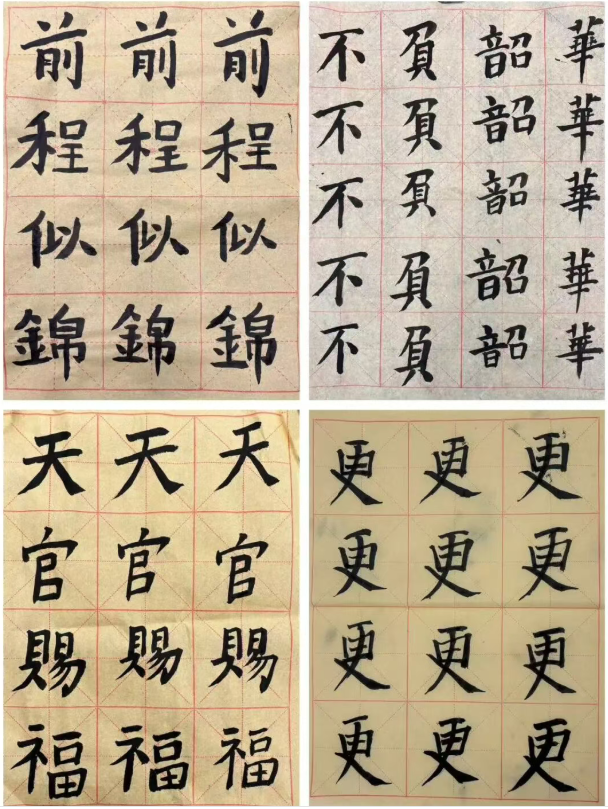 前前前
程程程
似似似
錦錦錦
不負韶華
不負韶華
不負韶華
不負韶華
不負韶華
天天天
官官官
賜賜賜
福福福
更更更
更更更
更更更
更更更